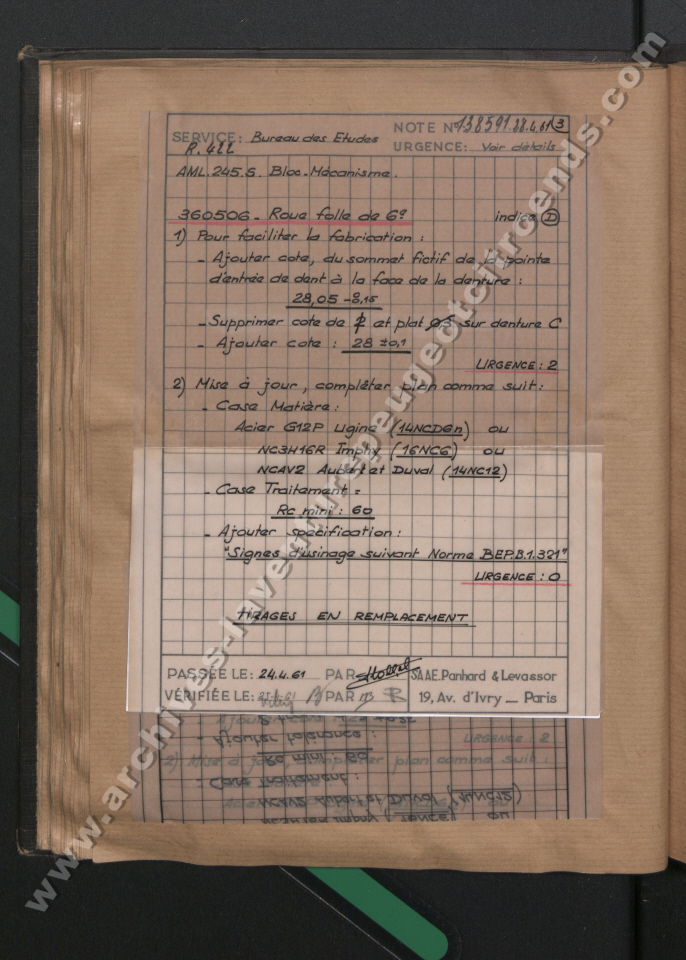 SERVICE: Bureau des Etudes
R.422
NOTE N° 138591.28.4.61 3
URGENCE: Voir détails
AML.245.S. Bloc-Mécanisme.
360506_ Roue folle de 6° indice D
1) Pour faciliter la fabrication :
_ Ajouter cote, du sommet fictif de la pointe
d'entrée de dent à la face de la denture :
28,05
_ Supprimer cote de et plat sur denture C
_ Ajouter cote : 28 ±0,1
URGENCE : 2
2) Mise à jour, compléter plan comme suit :
_ Case Matière :
Acier G12P Ugine (14NCD6n) ou
NC3H16R Imphy (16NC6) ou
NCAV2 Aubert et Duval (14NC12)
_ Case Traitement =
Rc mini : 60
_ Ajouter spécification :
"Signes d'usinage suivant Norme BEP.B.1.321"
URGENCE : 0
TIRAGES EN REMPLACEMENT
PASSÉE LE: 24.4.61 PAR
SAAE. Panhard & Levassor
VÉRIFIÉE LE: PAR
19, Av. d'Ivry _ Paris
URGENCE : 2
_ Ajouter tolérance :
Rc mini : 60
2) Mise à jour, compléter plan comme suit :
_ Case Traitement :
NCAV2 Aubert et Duval (14NC12)
ou
www.archives-laventurepeugeotcitroends.com